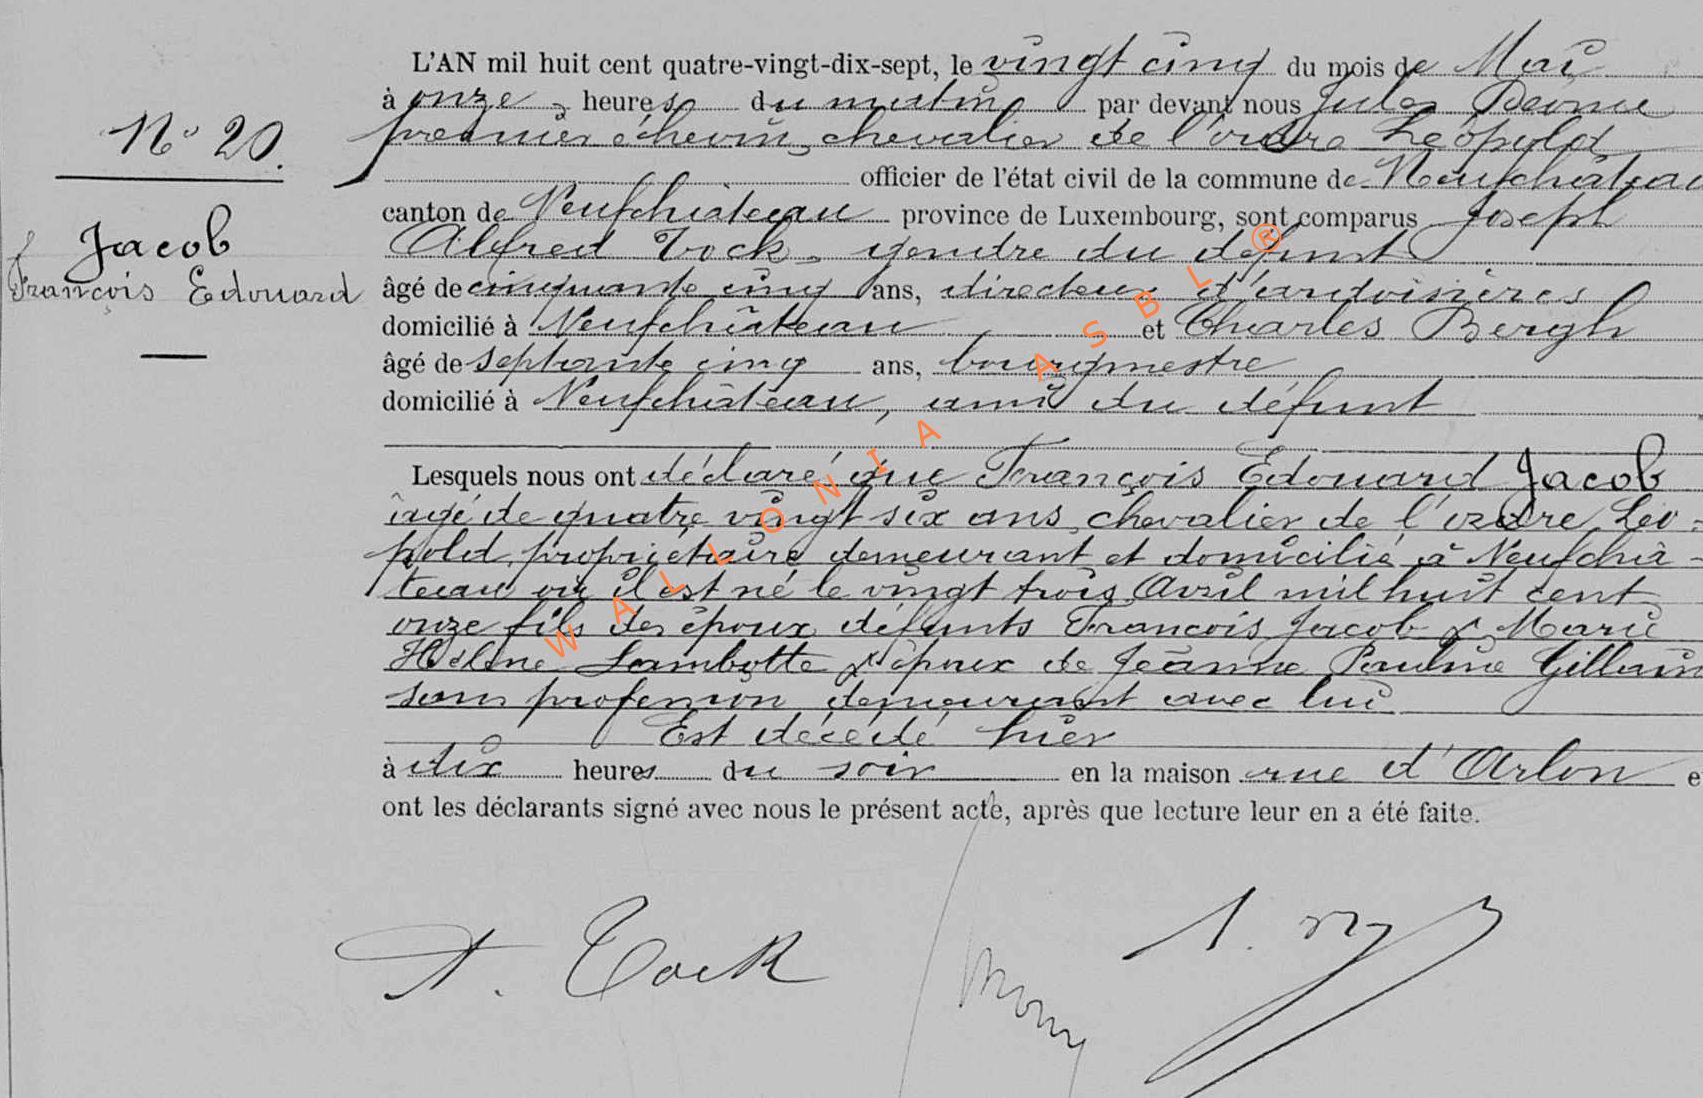 L'AN mil huit cent quatre-vingt-dix-sept, le vingt cinq du mois de Mai
à onze heures du matin par devant nous Jules
N° 20. premier échevin, chevalier de l'ordre Léopold
officier de l'état civil de la commune de Neufchâteau
canton de Neufchâteau province de Luxembourg, sont comparus Joseph
Jacob
François Edouard
Alfred Tock, gendre du défunt
âgé de cinquante cinq ans, directeur d'ardoisières
domicilié à Neufchâteau et Charles Bergh
âgé de septante cinq ans, bourgmestre
domicilié à Neufchâteau, ami du défunt
Lesquels nous ont déclaré que François Edouard Jacob
âgé de quatre vingt six ans, chevalier de l'ordre Léo-
pold, propriétaire demeurant et domicilié à Neufchâ-
teau où il est né le vingt trois Avril mil huit cent
onze fils des époux défunts François Jacob & Marie
Hélène Lambotte & époux de Jeanne Pauline Gillain
sans profession demeurant avec lui
Est décédé hier
à dix heures du soir en la maison rue d'Arlon e
ont les déclarants signé avec nous le présent acte, après que lecture leur en a été faite.
A. Tock
WALLONIA ASBL®